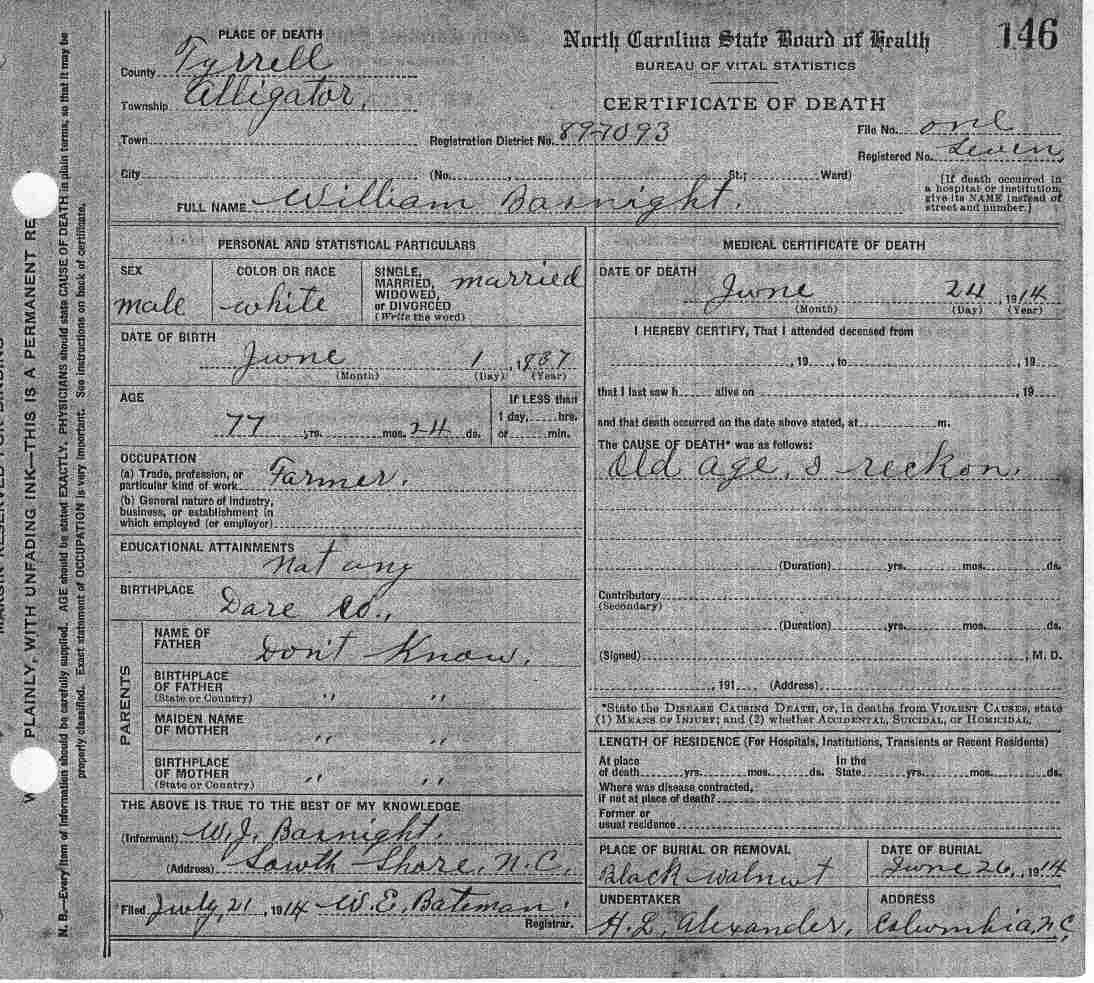 146
North Carolina State Board of Health
BUREAU OF VITAL STATISTICS
CERTIFICATE OF DEATH
PLACE OF DEATH
County Tyrrell
Township Alligator,
Town
Registration District No. 89-7093
File No. one
Registered No. Seven
City (No. , St.; Ward)
[If death occurred in
a hospital or institution,
give its NAME instead of
street and number.]
FULL NAME William Basnight.
PERSONAL AND STATISTICAL PARTICULARS
SEX
male
COLOR OR RACE
white
SINGLE,
MARRIED,
WIDOWED,
or DIVORCED
(Write the word)
married
DATE OF BIRTH
June 1, 1837
(Month) (Day) (Year)
AGE
77 yrs. mos. 24 ds.
If LESS than
1 day, hrs.
or min.
OCCUPATION
(a) Trade, profession, or
particular kind of work Farmer.
(b) General nature of industry,
business, or establishment in
which employed (or employer)
EDUCATIONAL ATTAINMENTS
Not any
BIRTHPLACE
Dare Co.,
PARENTS
NAME OF
FATHER
Don't Know.
BIRTHPLACE
OF FATHER
(State or Country)
" "
MAIDEN NAME
OF MOTHER
" "
BIRTHPLACE
OF MOTHER
(State or Country)
" "
THE ABOVE IS TRUE TO THE BEST OF MY KNOWLEDGE
(Informant) W. J. Basnight.
(Address) South Shore, N.C.
Filed July 21, 1914 W. E. Bateman.
Registrar.
MEDICAL CERTIFICATE OF DEATH
DATE OF DEATH
June 24, 1914
(Month) (Day) (Year)
I HEREBY CERTIFY, That I attended deceased from
, 19 , to , 19
that I last saw h alive on , 19
and that death occurred on the date above stated, at m.
The CAUSE OF DEATH* was as follows:
Old age, I reckon.
(Duration) yrs. mos. ds.
Contributory
(Secondary)
(Duration) yrs. mos. ds.
(Signed) , M. D.
, 191 (Address)
*State the DISEASE CAUSING DEATH, or, in deaths from VIOLENT CAUSES, state
(1) MEANS OF INJURY; and (2) whether ACCIDENTAL, SUICIDAL, or HOMICIDAL.
LENGTH OF RESIDENCE (For Hospitals, Institutions, Transients or Recent Residents)
At place
of death yrs. mos. ds.
In the
State yrs. mos. ds.
Where was disease contracted,
if not at place of death?
Former or
usual residence
PLACE OF BURIAL OR REMOVAL
Black Walnut
DATE OF BURIAL
June 26, 1914
UNDERTAKER
H. L. Alexander,
ADDRESS
Columbia, N.C.
PLAINLY, WITH UNFADING INK—THIS IS A PERMANENT RE
N. B.—Every item of information should be carefully supplied. AGE should be stated EXACTLY. PHYSICIANS should state CAUSE OF DEATH in plain terms, so that it may be
properly classified. Exact statement of OCCUPATION is very important. See instructions on back of certificate.